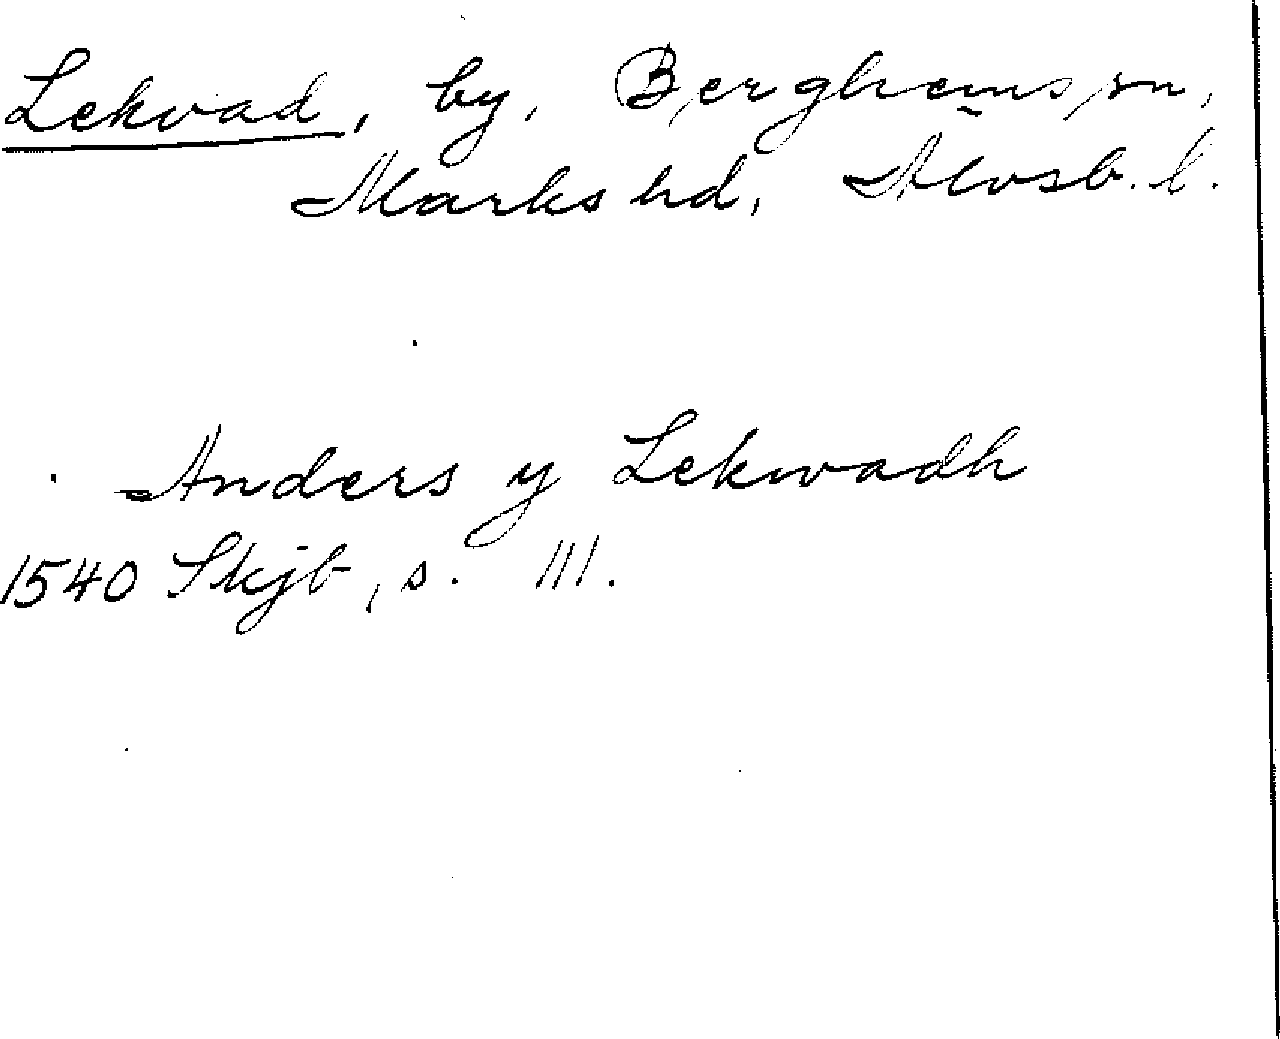 Lekvad, by, Berghems sn,
Marks hd, Älvsb. l.
Anders y Lekwadh
1540 Skjb, s. 111.